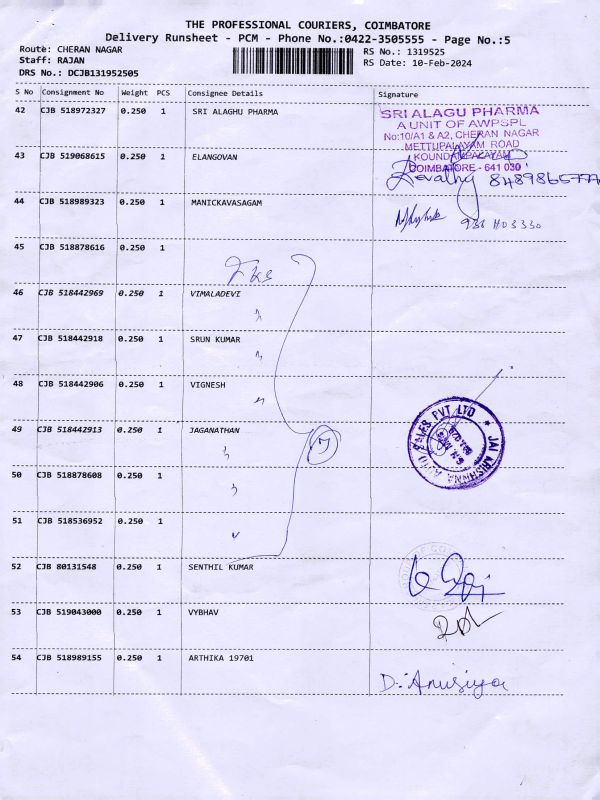 THE PROFESSIONAL COURIERS, COIMBATORE
Delivery Runsheet - PCM - Phone No.:0422-3505555 - Page No.:5
Route: CHERAN NAGAR
RS No.: 1319525
Staff: RAJAN
RS Date: 10-Feb-2024
DRS No.: DCJB131952505
S No Consignment No Weight PCS Consignee Details Signature
42 CJB 518972327 0.250 1 SRI ALAGHU PHARMA
SRI ALAGU PHARMA
A UNIT OF AWPSPL
No:10/A1 & A2, CHERAN NAGAR
METTUPALAYAM ROAD
KOUNDAMPALAYAM
COIMBATORE - 641 030
43 CJB 519068615 0.250 1 ELANGOVAN
Revathy
44 CJB 518989323 0.250 1 MANICKAVASAGAM
45 CJB 518878616 0.250 1
46 CJB 518442969 0.250 1 VIMALADEVI
47 CJB 518442918 0.250 1 SRUN KUMAR
48 CJB 518442906 0.250 1 VIGNESH
49 CJB 518442913 0.250 1 JAGANATHAN
7
JAI KRISHNAA AUTO SALES PVT LTD
50 CJB 518878608 0.250 1
51 CJB 518536952 0.250 1
52 CJB 80131548 0.250 1 SENTHIL KUMAR
53 CJB 519043000 0.250 1 VYBHAV
54 CJB 518989155 0.250 1 ARTHIKA 19701
D. Anusiya